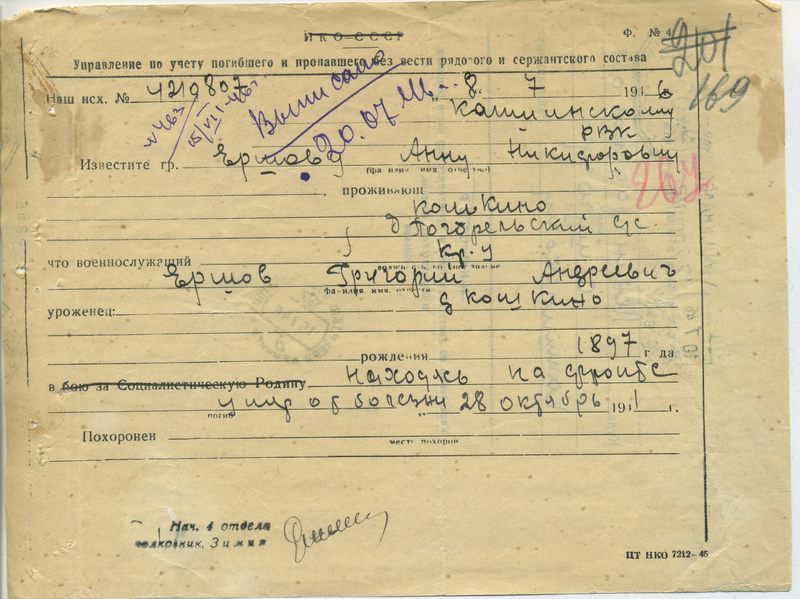 НКО-СССР
Ф. № 4
201
169
Управление по учету погибшего и пропавшего без вести рядового и сержантского состава
Наш исх. № 4219807 „8" 7 1946
N 463
15/VII-46г
Выписано
20.07.46г.
Калининскому
РВК
Известите гр. Ершову Анну Никифоровну
(фамилия, имя, отчество)
267
проживающ
Кошкино
Погорельский с/с.
что военнослужащий кр-ц
Ершов Григорий Андреевич
фамилия, имя, отчество
уроженец: д Кошкино
рождения 1897 г да
в бою за Социалистическую Родину находясь на фронте
умер от болезни 28 октябрь 1941 г.
погиб
Похоронен
место похорон
Нач. 4 отдела
полковник, Зимин
ЦТ НКО 7212-45